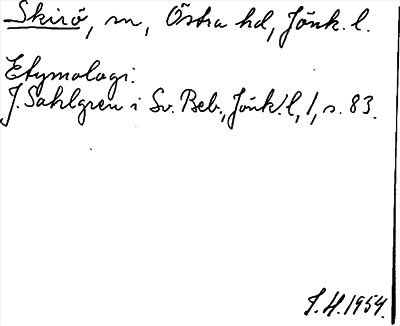 Skirö, sn, Östra hd, Jönk. l.
Etymologi.
J. Sahlgren i Sv. Beb., Jönk. l, 1, s. 83.
I.H. 1954.